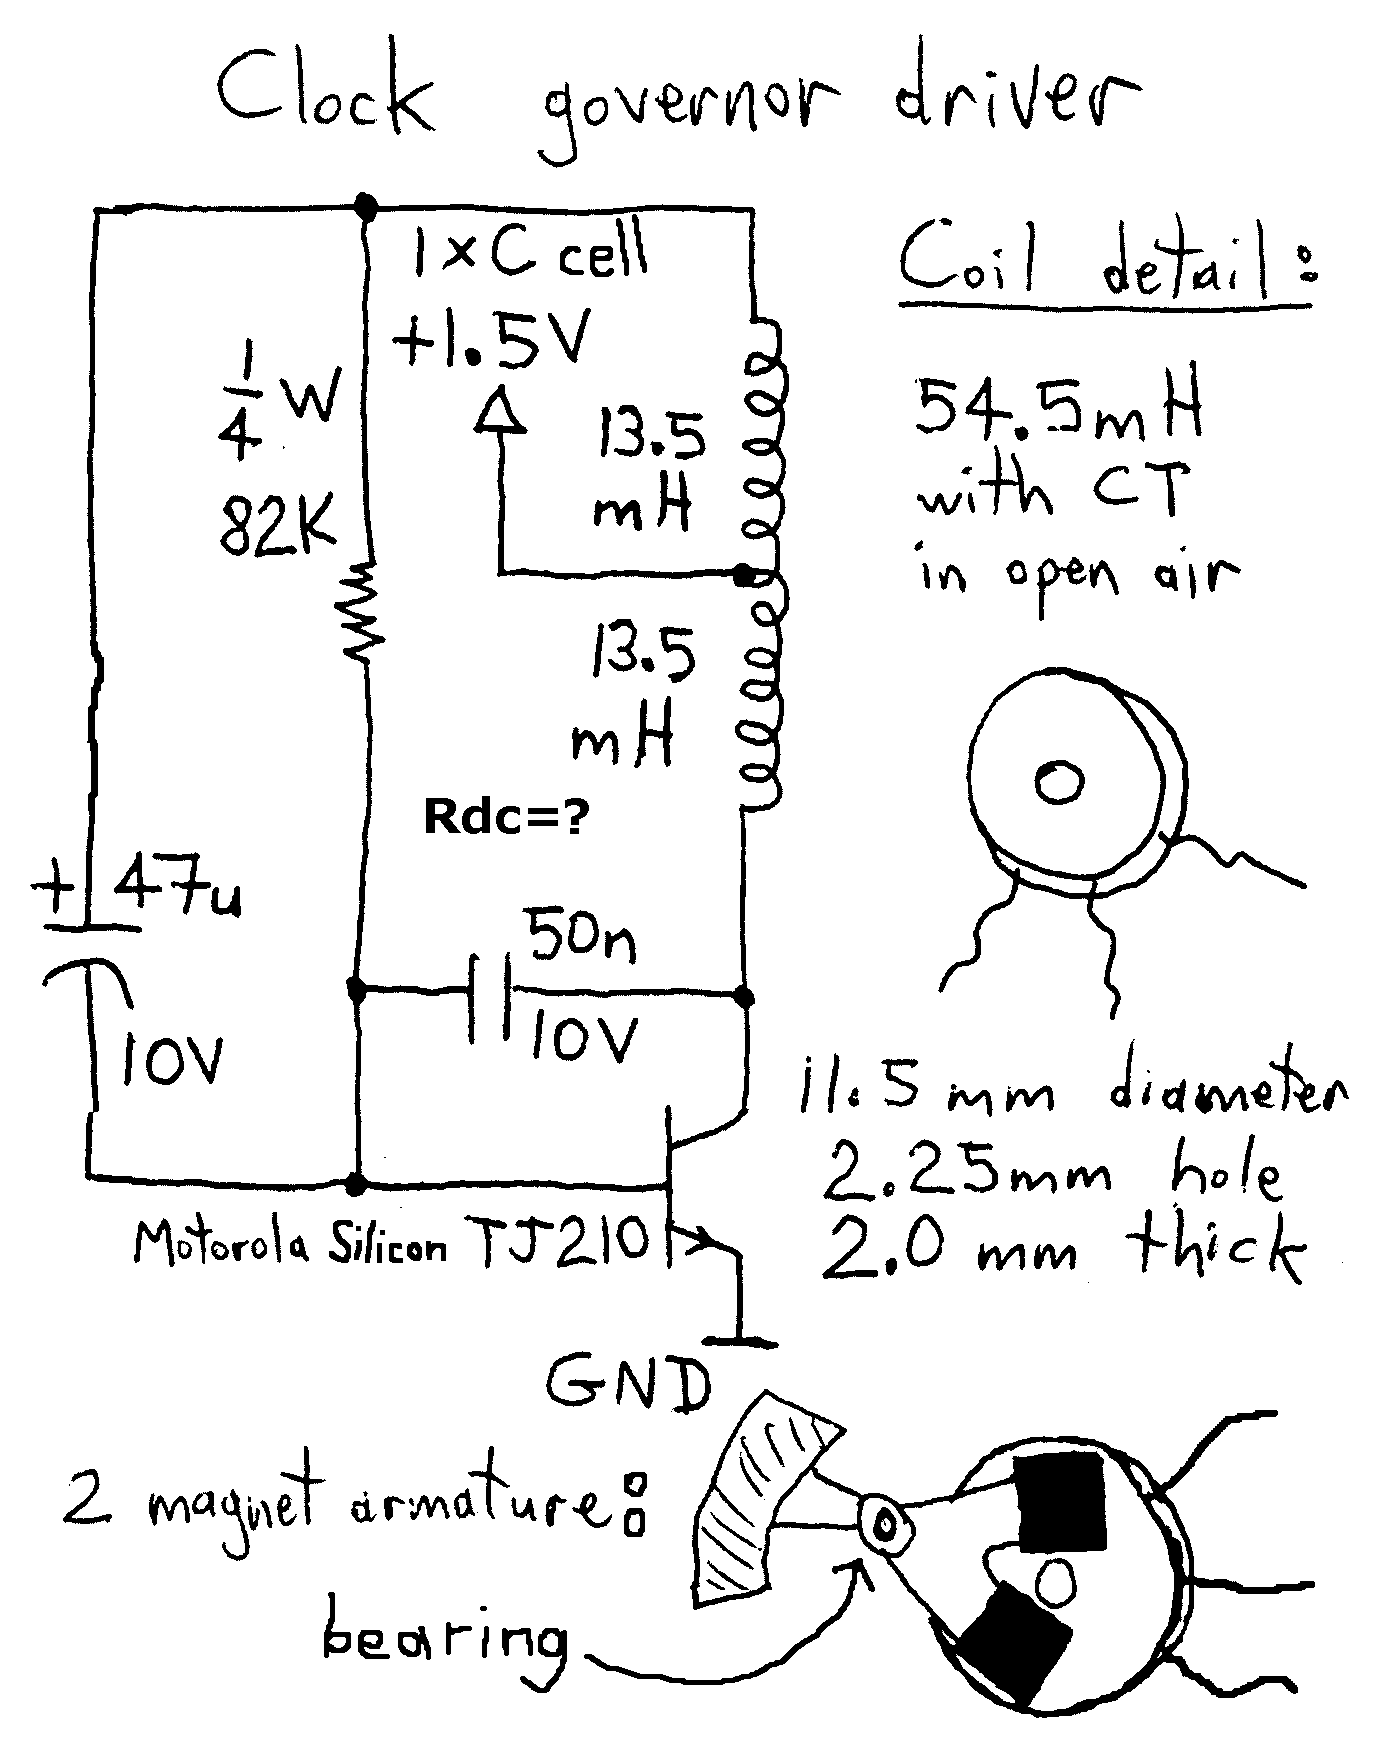 Clock governor driver
1 x C cell
+1.5V
1/4 W
82K
13.5
mH
13.5
mH
Rdc=?
+ 47u
10V
50n
10V
Motorola Silicon TJ210
GND
Coil detail:
54.5mH
with CT
in open air
11.5 mm diameter
2.25mm hole
2.0 mm thick
2 magnet armature:
bearing